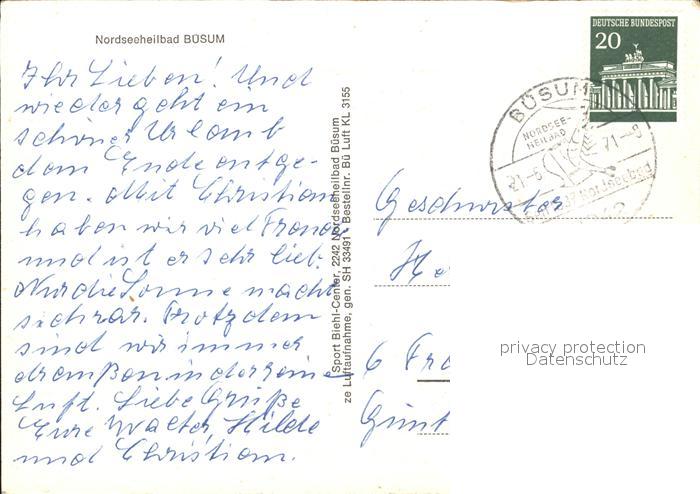 Nordseeheilbad BÜSUM
Ihr Lieben! Und
wieder geht ein
schöner Urlaub
dem Ende entge-
gen. Mit Christian
haben wir viel Freude
und ist er sehr lieb.
Nur die Sonne macht
sich rar. Trotzdem
sind wir immer
draußen in der reine
Luft. Liebe Grüße
Eure Walter, Hilde
und Christian.
Sport Biehl-Center, 2242 Nordseeheilbad Büsum
ze Luftaufnahme, gen. SH 33491 · Bestellnr. Bü Luft KL 3155
DEUTSCHE BUNDESPOST
20
BÜSUM
NORDSEE-
HEILBAD
21-6 71-8
Nordseebad
Geschwister
He
6 Fra
Günt
privacy protection
Datenschutz